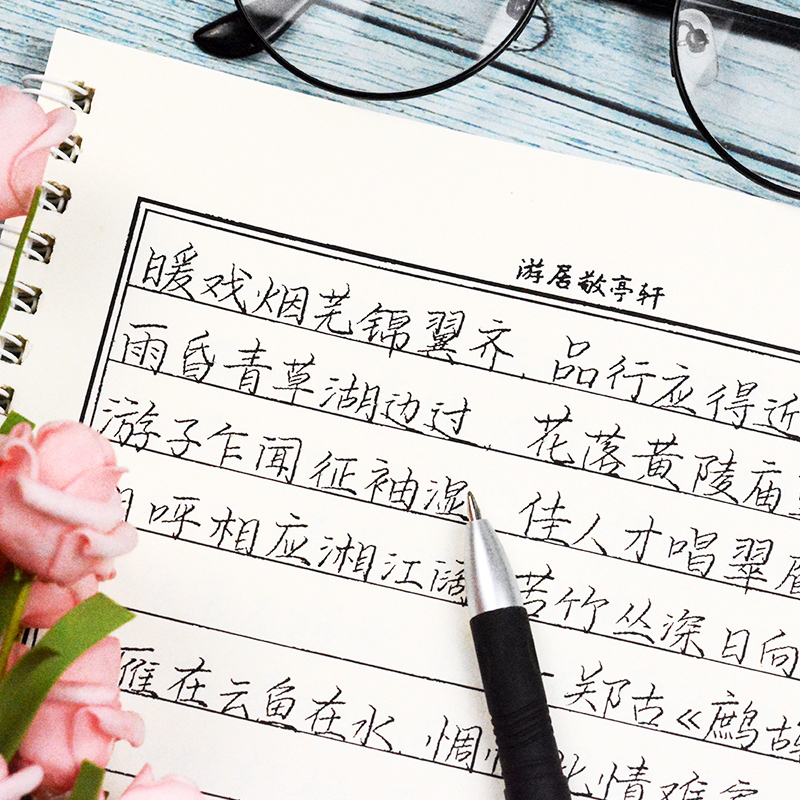 游居敬亭轩
暖戏烟芜锦翼齐，品行应得近
雨昏青草湖边过，花落黄陵庙
游子乍闻征袖湿，佳人才唱翠眉
呼相应湘江阔，苦竹丛深日向
—郑古《鹧鸪
雁在云鱼在水，惆 此情难